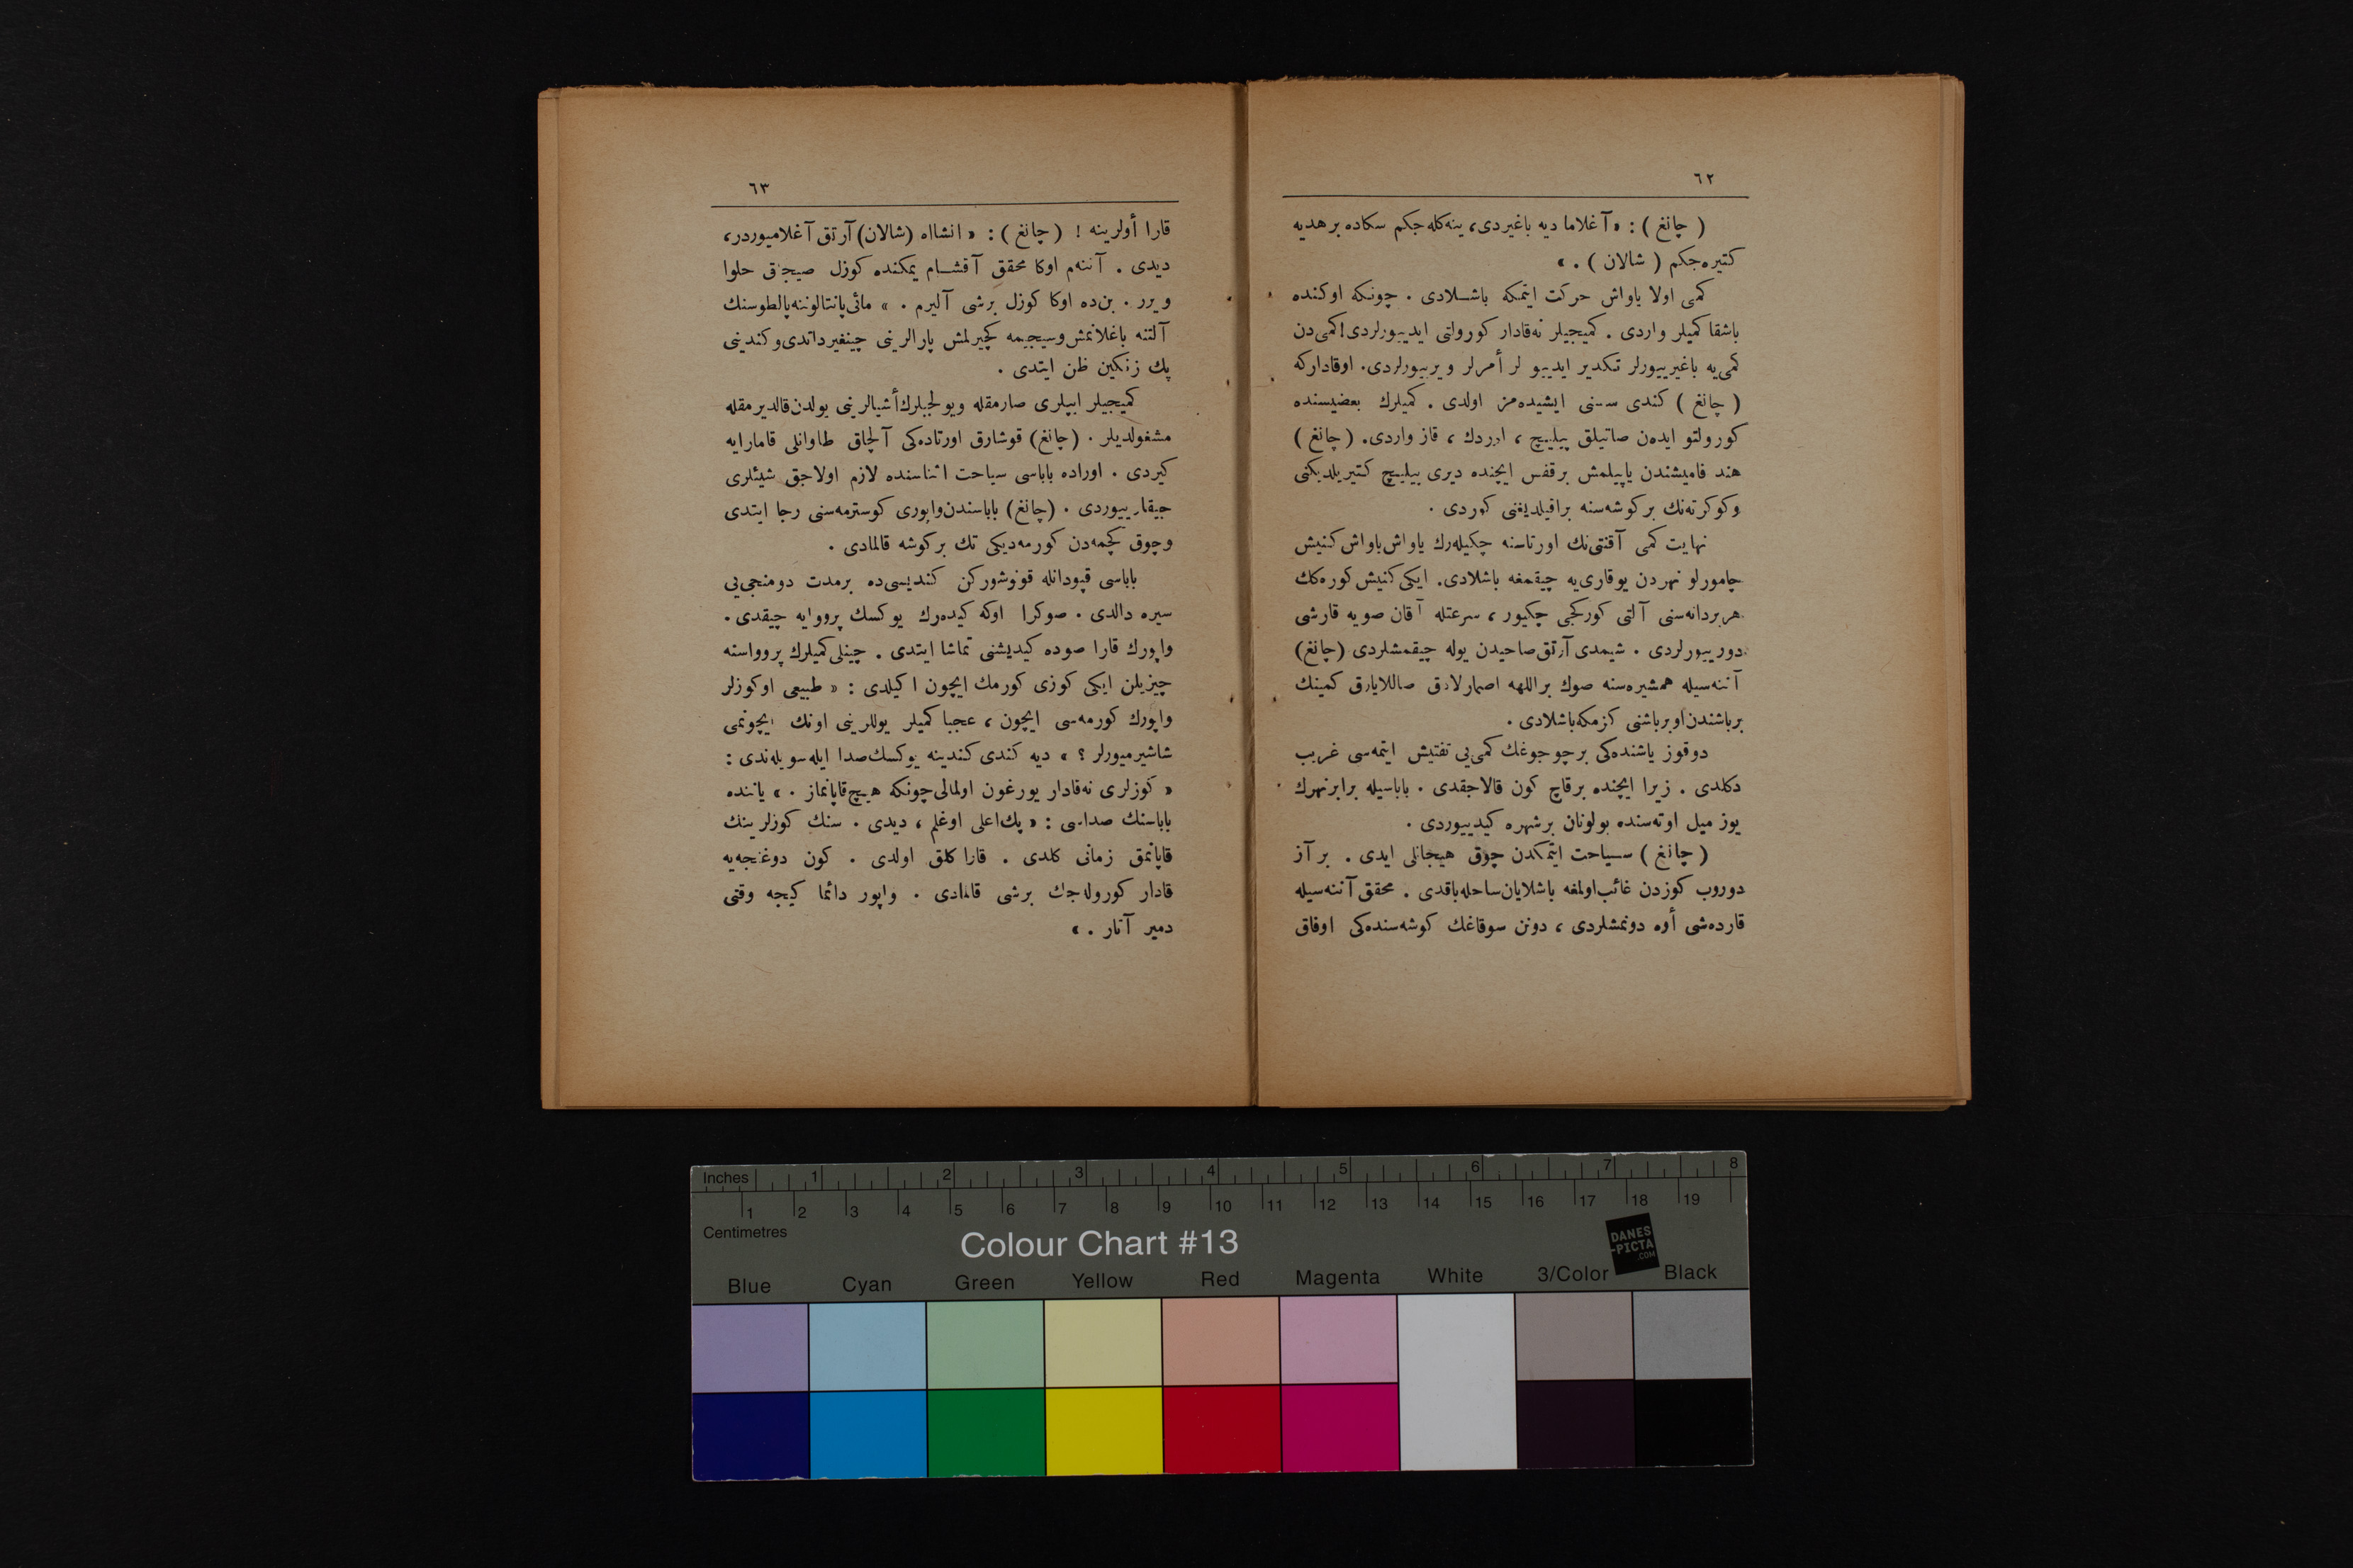 ٦٢
( چانغ ) : « آغلاما دیه باغیردی، ینه کله جکم سکاده بر هدیه
کتیره جکم ( شالان ) . »
کمی اولا یاواش حرکت ایتمکه باشلادی . چونکه اوکنده
باشقا کمیلر واردی . کمیجیلر نه قادار کورولتی ایدییورلردی! کمی دن
کمی یه باغیرییورلر تکدیر ایدییو لر أمرلر ویرییورلردی. اوقادارکه
( چانغ ) کندی سسنی ایشیده مز اولدی . کمیلرك بعضیسنده
کورولتو ایده ن صاتیلق پیلیچ ، اوردك ، قاز واردی. ( چانغ )
هند قامیشندن یاپیلمش بر قفس ایچنده دیری پیلیچ کتیریلدیکنی
وکوکرته نك بر کوشه سنه براقیلدیغنی کوردی .
نهایت کمی آقنتی نك اورتاسنه چکیله رك یاواش یاواش کنیش
چامورلو نهردن یوقاری یه چیقمغه باشلادی. ایکی کنیش کوره کك
هر بردانه سنی آلتی کورکجی چکیور ، سرعتله آقان صویه قارشی
دورییورلردی . شیمدی آرتق صاحیدن یوله چیقمشلردی (چانغ)
آننه سیله همشیره سنه صوك بر اللهه اصمارلادق صاللایارق کمینك
برباشندن اوبرباشنی کزمکه باشلادی .
دوقوز یاشنده کی برچوجوغك کمی یی تفتیش ایتمه سی غریب
دکلدی . زیرا ایچنده برقاچ کون قالاجقدی . باباسیله برابر نهرك
یوز میل اوته سنده بولونان بر شهره کیدییوردی .
( چانغ ) سیاحت ایتمکدن چوق هیجانلی ایدی . بر آز
دوروب کوزدن غائب اولمغه باشلایان ساحله باقدی . محقق آننه سیله
قارده شی أوه دونمشلردی ، دونن سوقاغك کوشه سنده کی اوفاق
٦٣
قارا أولرینه ! ( چانغ ) : « انشااه (شالان) آرتق آغلامیوردر،
دیدی . آننه م اوکا محقق آقشام یمکنده کوزل صیجاق حلوا
ویرر . بن ده اوکا کوزل برشی آلیرم . » مائی پانتالوننه پالطوسنك
آلتنه باغلانمش وسیجیمه کچیرلمش پارالرینی چینغیرداتدی و کندینی
پك زنکین ظن ایتدی .
کمیجیلر ایپلری صارمقله ویولجیلرك أشیالرینی یولدن قالدیرمقله
مشغولدیلر . (چانغ) قوشارق اورتاده کی آلچاق طاوانلی قامارایه
کیردی . اوراده باباسی سیاحت اثناسنده لازم اولاجق شیئلری
چیقارییوردی . (چانغ) باباسندن واپوری کوسترمه سنی رجا ایتدی
وچوق کچمه دن کورمه دیکی تك بر کوشه قالمادی .
باباسی قپودانله قونوشورکن کندیسی ده برمدت دومنجی یی
سیره دالدی . صوکرا اوکه کیده رك یوکسك پرووایه چیقدی .
واپورك قارا صوده کیدیشنی تماشا ایتدی . چینلی کمیلرك پروواسنه
چیزیلن ایکی کوزی کورمك ایچون اکیلدی : « طبیعی اوکوزلر
واپورك کورمه سی ایچون ، عجبا کمیلر یوللرینی اونك ایچونمی
شاشیرمیورلر ؟ » دیه کندی کندینه یوکسك صدا ایله سویله ندی :
« کوزلری نه قادار یورغون اولمالی چونکه هیچ قاپانماز . » یاننده
باباسنك صداسی : « پك اعلی اوغلم ، دیدی . سنك کوزلرینك
قاپانمق زمانی کلدی . قارا کلق اولدی . کون دوغنجه یه
قادار کوروله جك برشی قالمادی . واپور دائما کیجه وقتی
دمیر آتار . »
Inches 1 2 3 4 5 6 7 8
1 2 3 4 5 6 7 8 9 10 11 12 13 14 15 16 17 18 19
Centimetres
Colour Chart #13
DANES
-PICTA
.COM
Blue Cyan Green Yellow Red Magenta White 3/Color Black